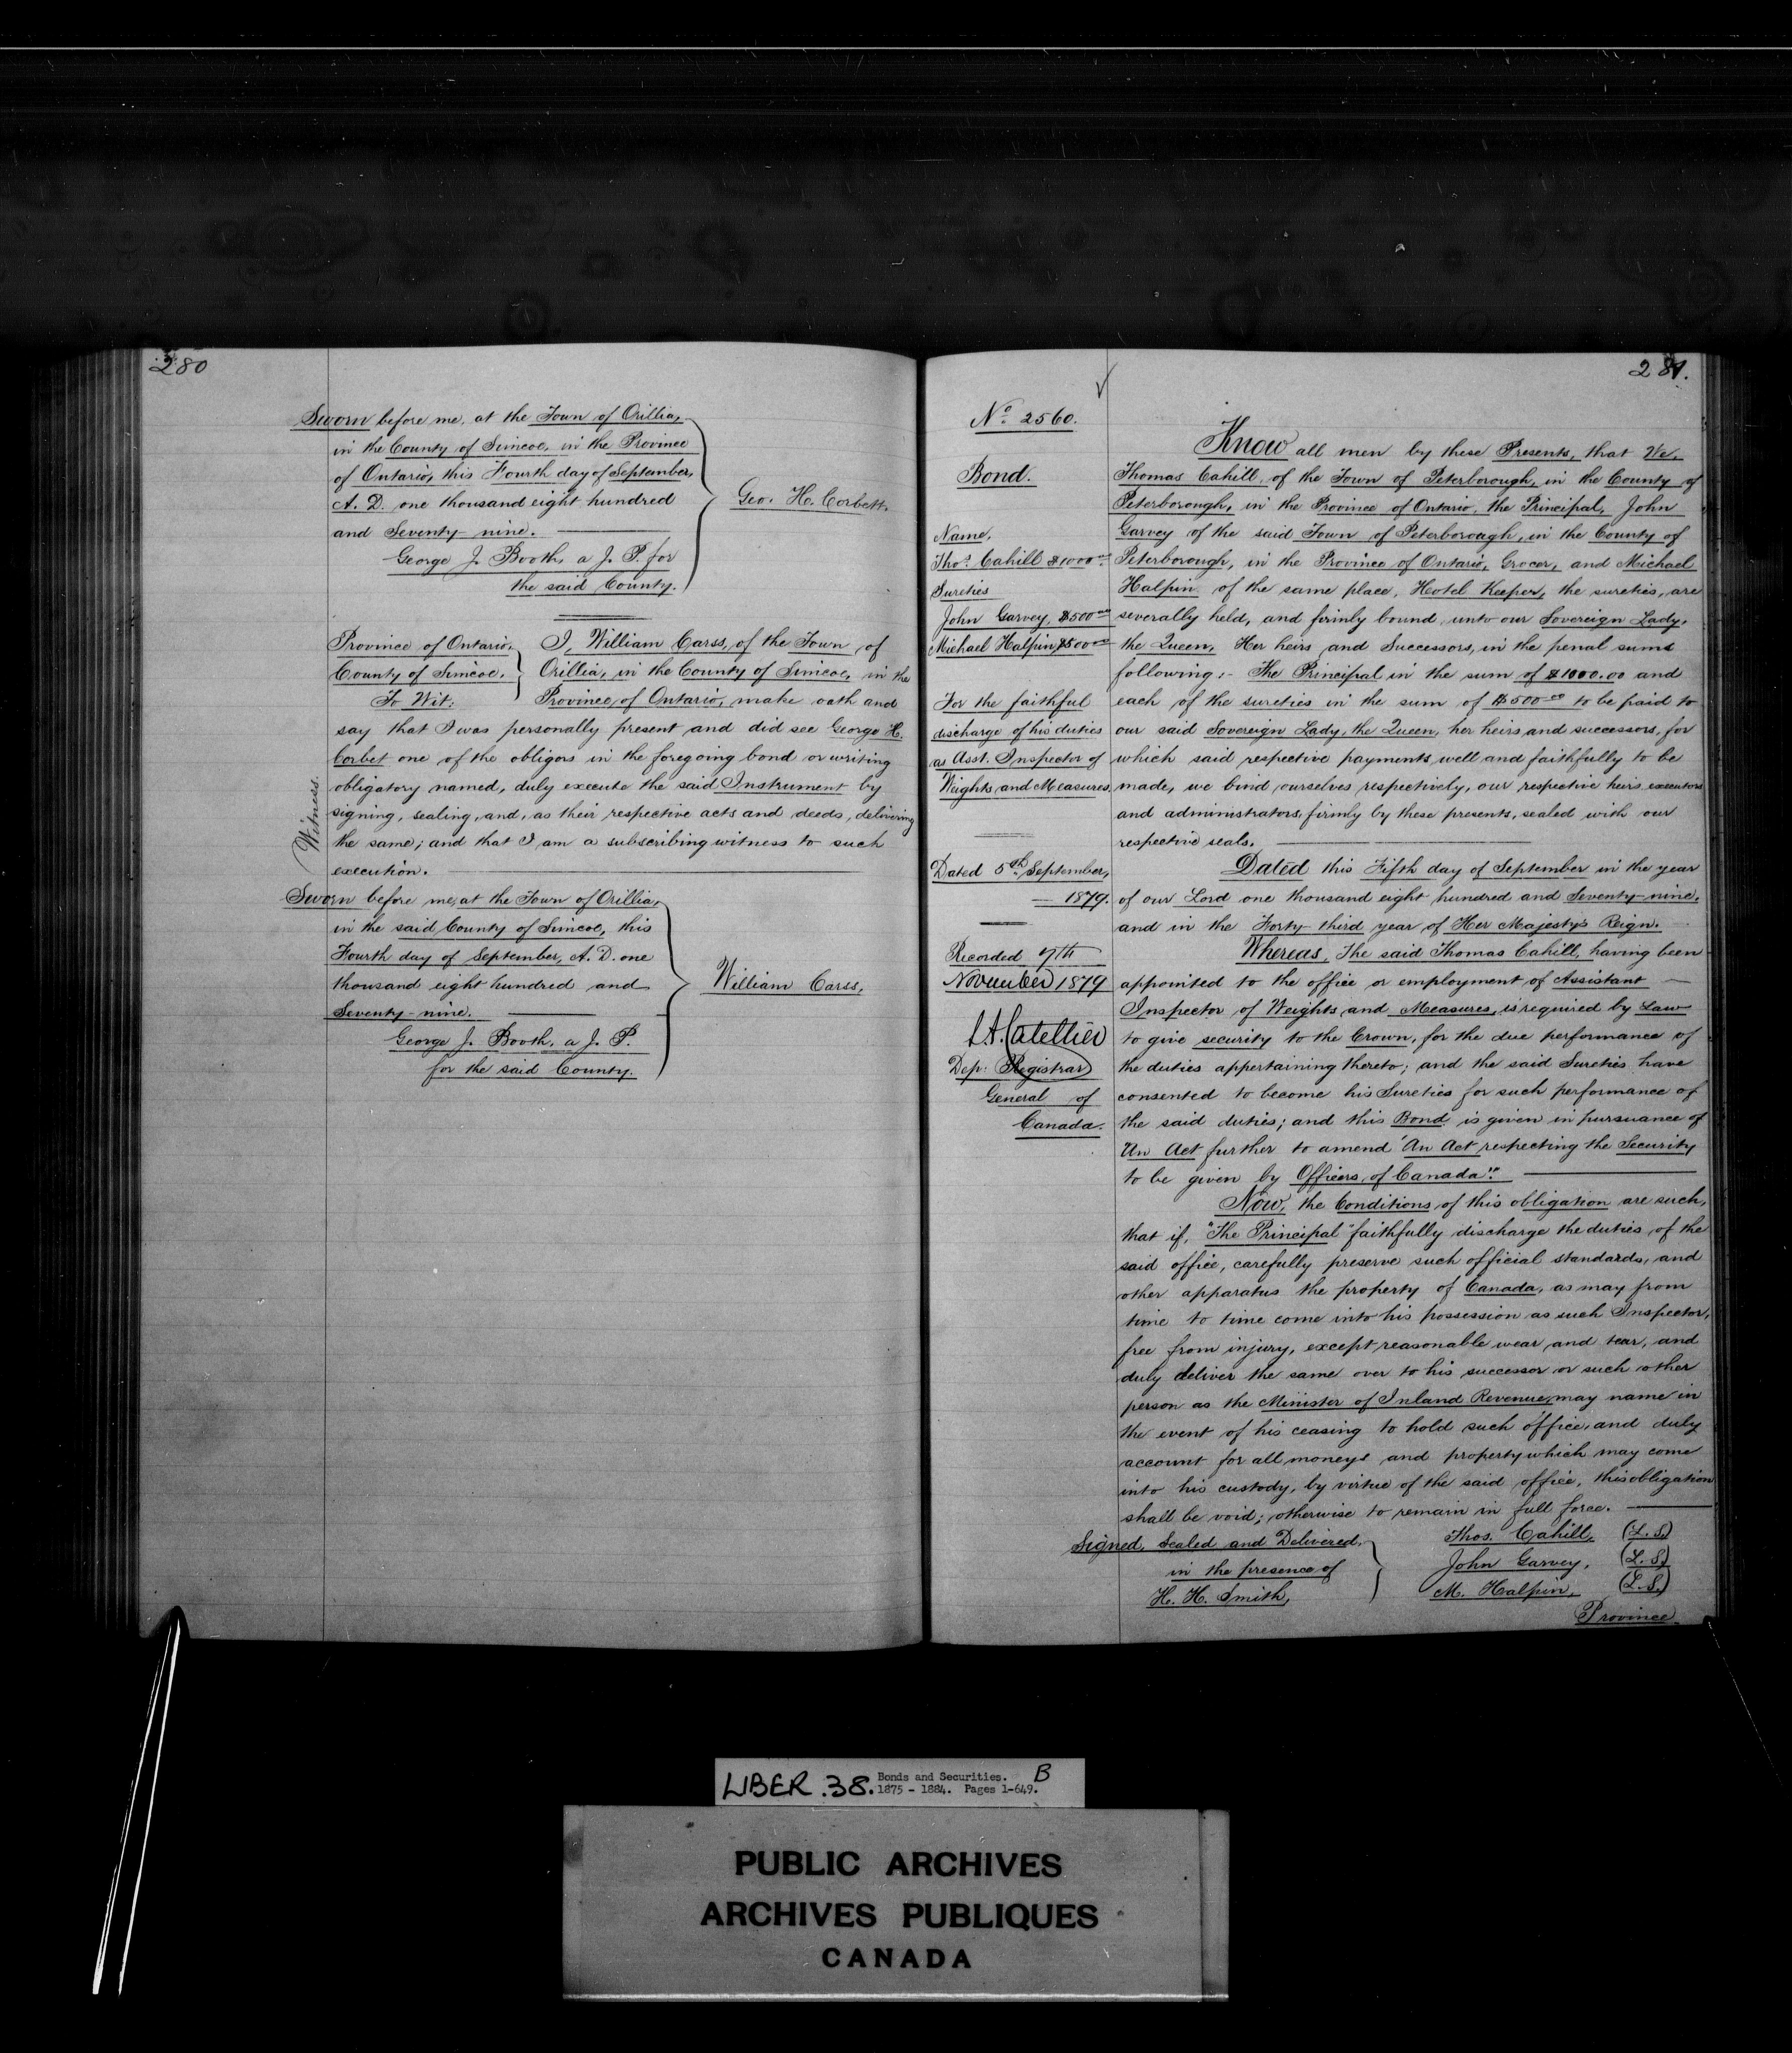 280
Sworn before me, at the Town of Orillia,
in the County of Simcoe, in the Province
of Ontario, this Fourth day of September,
A. D. one thousand eight hundred
and Seventy-nine.
George J. Booth, a J. P. for
the said County.
Geo. H. Corbett.
Province of Ontario,
County of Simcoe.
To Wit:
I, William Carss, of the Town of
Orillia, in the County of Simcoe, in the
Province of Ontario, make oath and
say that I was personally present and did see George H.
Corbet one of the obligors in the foregoing bond or writing
obligatory named, duly execute the said Instrument by
signing, sealing, and, as their respective acts and deeds, delivering
the same; and that I am a subscribing witness to such
execution.
Witness
Sworn before me, at the Town of Orillia,
in the said County of Simcoe, this
Fourth day of September, A. D. one
thousand eight hundred and
Seventy-nine.
George J. Booth, a J. P.
for the said County.
William Carss,
281.
No. 2560.
Bond.
Name,
Thos. Cahill $1000.00
Sureties
John Garvey, $500.00
Michael Halpin, $500.00
For the faithful
discharge of his duties
as Asst. Inspector of
Weights and Measures.
Dated 5th September,
1879.
Recorded 7th
November 1879
L.A. Catellier
Dep: Registrar
General of
Canada.
Know all men by these Presents, that We,
Thomas Cahill, of the Town of Peterborough, in the County of
Peterborough, in the Province of Ontario, the Principal, John
Garvey of the said Town of Peterborough, in the County of
Peterborough, in the Province of Ontario, Grocer, and Michael
Halpin of the same place, Hotel Keeper, the sureties, are
severally held, and firmly bound unto our Sovereign Lady,
the Queen, Her heirs and Successors, in the penal sums
following:- The Principal in the sum of $1000.00 and
each of the sureties in the sum of $500.00 to be paid to
our said Sovereign Lady, the Queen, her heirs and successors, for
which said respective payments, well and faithfully to be
made, we bind ourselves respectively, our respective heirs executors
and administrators, firmly by these presents, sealed with our
respective seals.
Dated this Fifth day of September in the year
of our Lord one thousand eight hundred and Seventy-nine,
and in the Forty-third year of Her Majesty's Reign.
Whereas, The said Thomas Cahill, having been
appointed to the office or employment of Assistant
Inspector of Weights and Measures, is required by Law
to give security to the Crown, for the due performance of
the duties appertaining thereto; and the said Sureties have
consented to become his Sureties for such performance of
the said duties; and this Bond is given in pursuance of
"An Act further to amend "An Act respecting the Security
to be given by Officers of Canada."
Now, the Conditions of this obligation are such,
that if, "The Principal" faithfully discharge the duties of the
said office, carefully preserve such official standards, and
other apparatus the property of Canada, as may from
time to time come into his possession as such Inspector,
free from injury, except reasonable wear and tear, and
duly deliver the same over to his successor or such other
person as the Minister of Inland Revenue, may name in
the event of his ceasing to hold such office, and duly
account for all moneys and property which may come
into his custody, by virtue of the said office, this obligation
shall be void; otherwise to remain in full force.
Signed, Sealed and Delivered,
in the presence of
H. H. Smith,
Thos. Cahill, (L.S.)
John Garvey, (L.S.)
M. Halpin, (L.S.)
Province
LIBER.38. Bonds and Securities. B
1875 - 1884. Pages 1-649.
PUBLIC ARCHIVES
ARCHIVES PUBLIQUES
CANADA